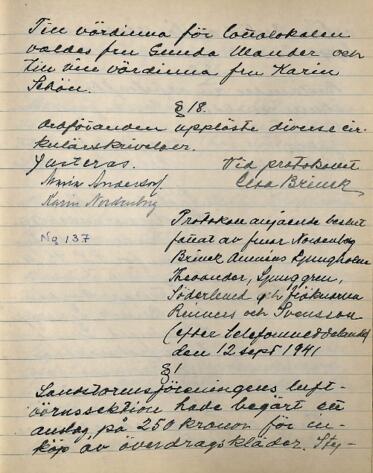 Till värdinna för lottalokalen
valdes fru Gunda Wander och
till vice värdinna fru Karin
Schön.
§ 18.
Ordföranden uppläste diverse cir-
kulärskrivelser.
Justeras. Vid protokollet
Maria Andersdorf. Elsa Brinck
Karin Nordenborg
No 137
Protokoll angående beslut
fattat av fruar Nordenborg
Brinck Ljungholm
Theander, Ljunggren,
Söderlund och fröknarna
Reiners och Svensson
(efter telefonmeddelande)
den 12 sept 1941
§ 1
Landstormsföreningens luft-
värnssektion hade begärt ett
anslag på 250 kronor för in-
köp av överdragskläder. Sty-